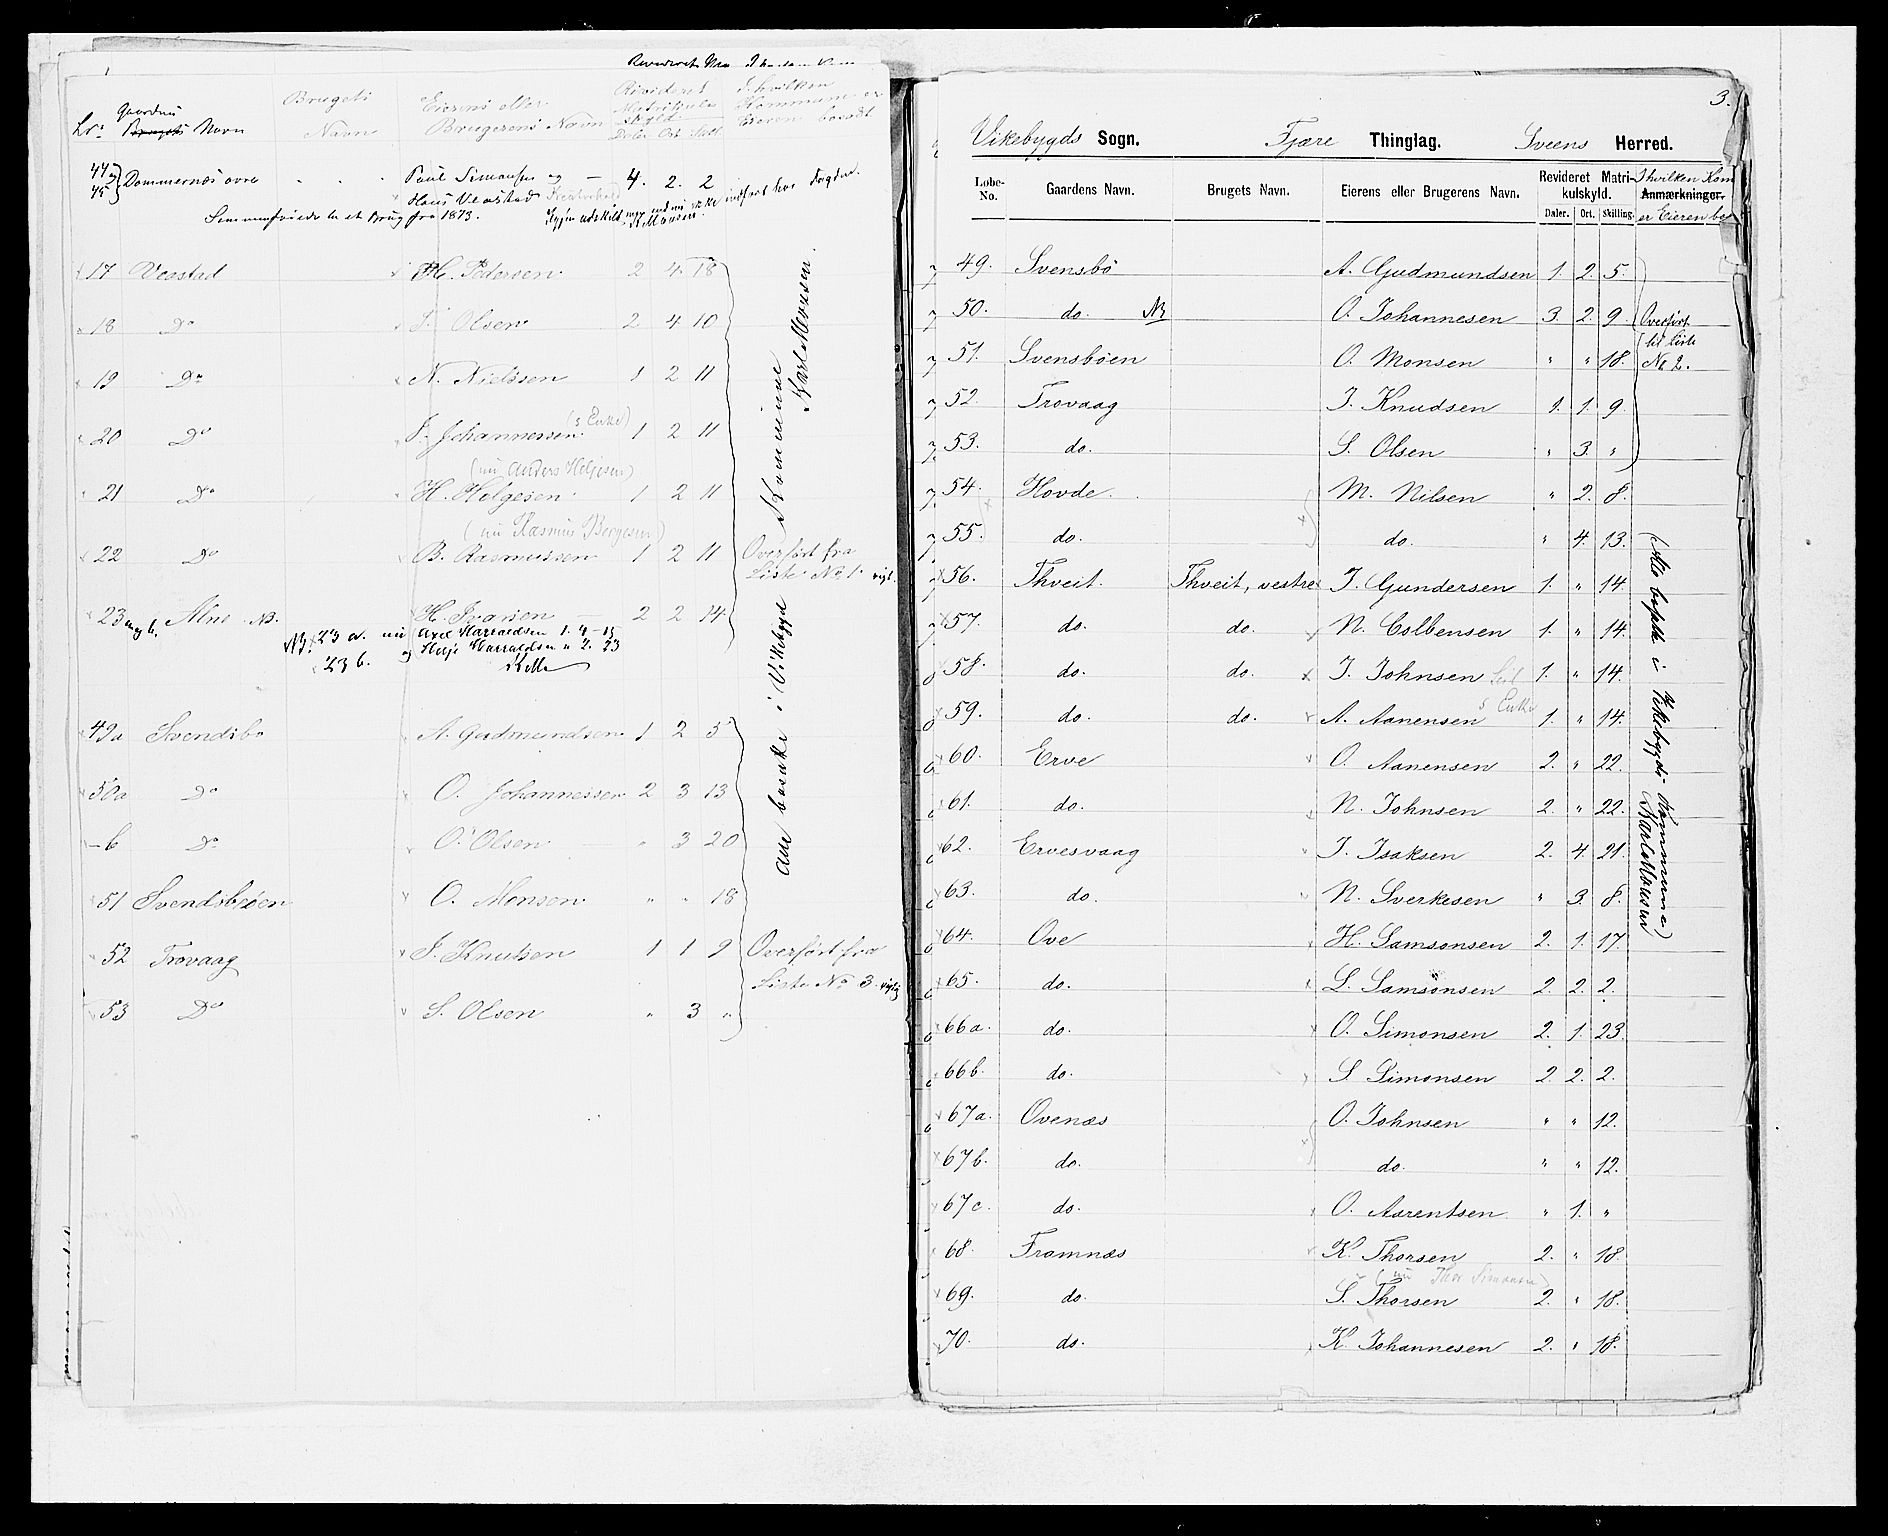 Lr: Gaardens Brugets Navn | Brugets Navn | Eierens eller Brugerens Navn | Revideret Matrikulskyld Daler Ort Skill. | I hvilken Kommune er Eieren bosadt
44 og 45 } Dommernæs øvre " " Paul Simonsen og — 4. 2. 2
Hans Veastad
Sammenføiede til et Brug fra 1873.
17 Veastad H. Pedersen 2 4 18
18 Do J. Olsen 2 4 10
19 Do N. Nielssen 1 2 11
20 Do J. Johannessen (s Enke) 1 2 11
(nu Anders Helgesen)
21 Do H. Helgesen 1 2 11
(nu Rasmus Bergesen)
22 Do B. Rasmussen 1 2 11 Overført fra
Liste No 1. rigt.
23 Alne NB. H. Ivarsen — 2 2 14
NB. 23 a. nu Axel Harraldsen 1. 4 - 15
23 b. og Helje Harraldsen " 2. 23
49a Svendsbø A. Gudmundsen 1 2 5
50a Do O. Johannessen 2 3 13
— b Do O. Olsen — " 3 20
51 Svendsbøen O. Monsen " " 18
52 Trovaag J. Knutsen 1 1 9 Overført fra
Liste No 3. rigtig
53 Do S. Olsen " 3 "
alle bosatte i Vikebygd Kommune
Karl Monsen
3.
Vikebygds Sogn. Fjære Thinglag. Sveens Herred.
Løbe-No. | Gaardens Navn. | Brugets Navn. | Eierens eller Brugerens Navn. | Revideret Matrikulskyld. Daler. Ort. Skilling. | I hvilken Kom Anmærkninger. er Eieren bo
49. Svensbö A. Gudmundsen 1. 2. 5.
50. do. NB O. Johannesen 3. 2. 9. Overført
51. Svensböen O. Monsen " " 18. til Liste No 2.
52. Trovaag J. Knudsen 1. 1. 9.
53. do. S. Olsen " 3. "
54. Hovde. M. Nilsen " 2. 8.
55. do. do. " 4. 13.
56. Thveit. Thveit, vestre J. Gundersen 1. " 14.
57. do. do. N. Colbensen 1. " 14.
58. do. do. J. Johnsen 1. " 14.
59. do. do. A. Aanensen s Enke 1. " 14.
60. Erve O. Aanensen 2. " 22.
61. do. N. Johnsen 2. " 22.
62. Ervesvaag J. Isaksen 2. 4. 21.
63. do. N. Sverkesen " 3. 8.
64. Ove H. Samsonsen 2. 1. 17.
65. do. L. Samsonsen 2. 2. 2.
66a. do. O. Simonsen 2. 1. 23.
66b. do. S. Simonsen 2. 2. 2.
67a. Ovenæs O. Johnsen " " 12.
67b. do. do. " " 12.
67c. do. O. Aarentsen " 1. "
68. Framnæs K. Thorsen 2. " 18.
(nu Thor Simonsen)
69. do. S. Thorsen 2. " 18.
70. do. K. Johannesen 2. " 18.
(Alle bosatte i Vikebygds Kommune)
Karl Monsen